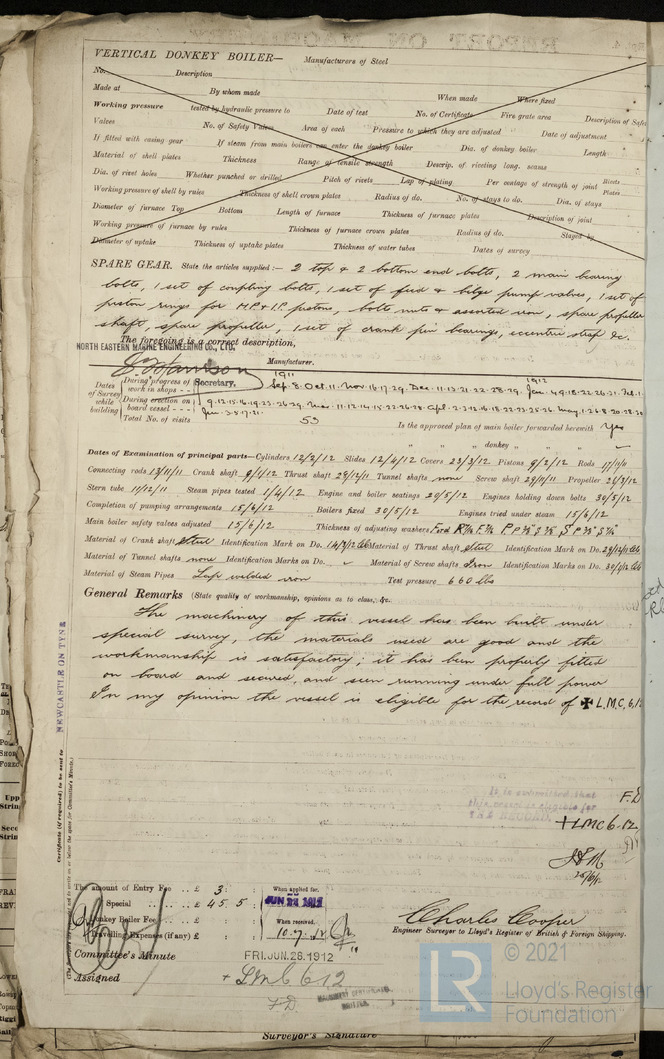 VERTICAL DONKEY BOILER— Manufacturers of Steel
No. Description
Made at By whom made When made Where fixed
Working pressure tested by hydraulic pressure to Date of test No. of Certificate Fire grate area Description of Safety
Valves No. of Safety Valves Area of each Pressure to which they are adjusted Date of adjustment
If fitted with easing gear If steam from main boilers can enter the donkey boiler Dia. of donkey boiler Length
Material of shell plates Thickness Range of tensile strength Descrip. of riveting long. seams
Dia. of rivet holes Whether punched or drilled Pitch of rivets Lap of plating Per centage of strength of joint Rivets Plates
Working pressure of shell by rules Thickness of shell crown plates Radius of do. No. of stays to do. Dia. of stays
Diameter of furnace Top Bottom Length of furnace Thickness of furnace plates Description of joint
Working pressure of furnace by rules Thickness of furnace crown plates Radius of do. Stayed by
Diameter of uptake Thickness of uptake plates Thickness of water tubes Dates of survey
SPARE GEAR. State the articles supplied:— 2 top & 2 bottom end bolts, 2 main bearing
bolts, 1 set of coupling bolts, 1 set of feed & bilge pump valves, 1 set of
piston rings for H.P. & I.P. pistons, bolts nuts & assorted iron, spare propeller
shaft, spare propeller, 1 set of crank pin bearings, eccentric strap &c.
The foregoing is a correct description,
NORTH EASTERN MARINE ENGINEERING CO., LTD.
Manufacturer.
Secretary.
Dates of Survey while building
During progress of work in shops - - 1911 Sep. 8. Oct. 11. Nov. 16. 17. 29. Dec. 11. 13. 21. 22. 28. 29. 1912 Jan. 4. 9. 18. 22. 26. 31. Feb. 1.
During erection on board vessel - - - 9. 12. 15. 16. 19. 23. 26. 29. Mar. 11. 12. 14. 15. 22. 26. 28. Apl. 2. 3. 12. 16. 18. 22. 23. 25. 26. May. 1. 2. 6. 8. 20. 28. 30
Jun. 3. 5. 17. 21.
Total No. of visits 53
Is the approved plan of main boiler forwarded herewith Yes
" " " donkey " "
Dates of Examination of principal parts—Cylinders 12/2/12 Slides 12/4/12 Covers 23/3/12 Pistons 9/2/12 Rods 17/11/11
Connecting rods 13/11/11 Crank shaft 9/1/12 Thrust shaft 29/12/11 Tunnel shafts none Screw shaft 29/11/11 Propeller 26/3/12
Stern tube 11/12/11 Steam pipes tested 1/4/12 Engine and boiler seatings 20/5/12 Engines holding down bolts 30/5/12
Completion of pumping arrangements 15/6/12 Boilers fixed 30/5/12 Engines tried under steam 15/6/12
Main boiler safety valves adjusted 15/6/12 Thickness of adjusting washers
Material of Crank shaft Steel Identification Mark on Do. Material of Thrust shaft Steel Identification Mark on Do.
Material of Tunnel shafts none Identification Marks on Do. Material of Screw shafts Iron Identification Marks on Do.
Material of Steam Pipes Lap welded iron Test pressure 660 lbs
General Remarks (State quality of workmanship, opinions as to class, &c.
The machinery of this vessel has been built under
special survey, the materials used are good and the
workmanship is satisfactory; it has been properly fitted
on board and secured, and seen running under full power
In my opinion the vessel is eligible for the record of ✠ L.M.C. 6.12
NEWCASTLE ON TYNE
Certificate (if required) to be sent to
It is submitted that
this vessel is eligible for
THE RECORD
F.D.
+ LMC 6-12
The amount of Entry Fee .. £ 3 : :
Special .. .. .. £ 45 . 5 :
Donkey Boiler Fee .. .. £ : :
Travelling Expenses (if any) £ : :
When applied for,
JUN 24 1912
When received,
10.7.12
Charles Cooper
Engineer Surveyor to Lloyd's Register of British & Foreign Shipping.
Committee's Minute FRI. JUN. 28. 1912
Assigned + L.M.C. 6.12
F.D.
MACHINERY CERTIFICATE
WRITTEN
Surveyor's Signature
© 2021
Lloyd's Register
Foundation
LR